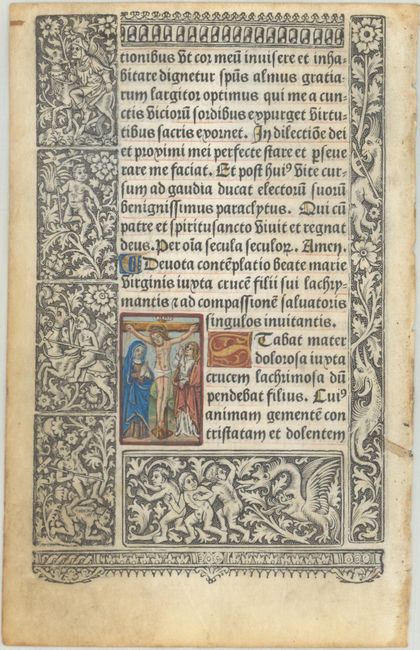 tionibus vt cor meū inuisere et inha-
bitare dignetur spūs almus gratia-
rum largitor optimus qui me a cun-
ctis viciorū sordibus expurget virtu-
tibus sacris exornet. In dilectiōe dei
et proximi mei perfecte stare et pseue
rare me faciat. Et post huiꝰ vite cur-
sum ad gaudia ducat electorū suorū
benignissimus paraclytus. Qui cū
patre et spiritusancto viuit et regnat
deus. Per oīa secula seculoꝝ. Amen.
Deuota contēplatio beate marie
virginis iuxta crucē filii sui lachry-
mantis ⁊ ad compassionē saluatoris
singulos inuitantis.
Stabat mater
dolorosa iuxta
crucem lachrimosa dū
pendebat filius. Cuiꝰ
animam gementē con
tristatam et dolentem